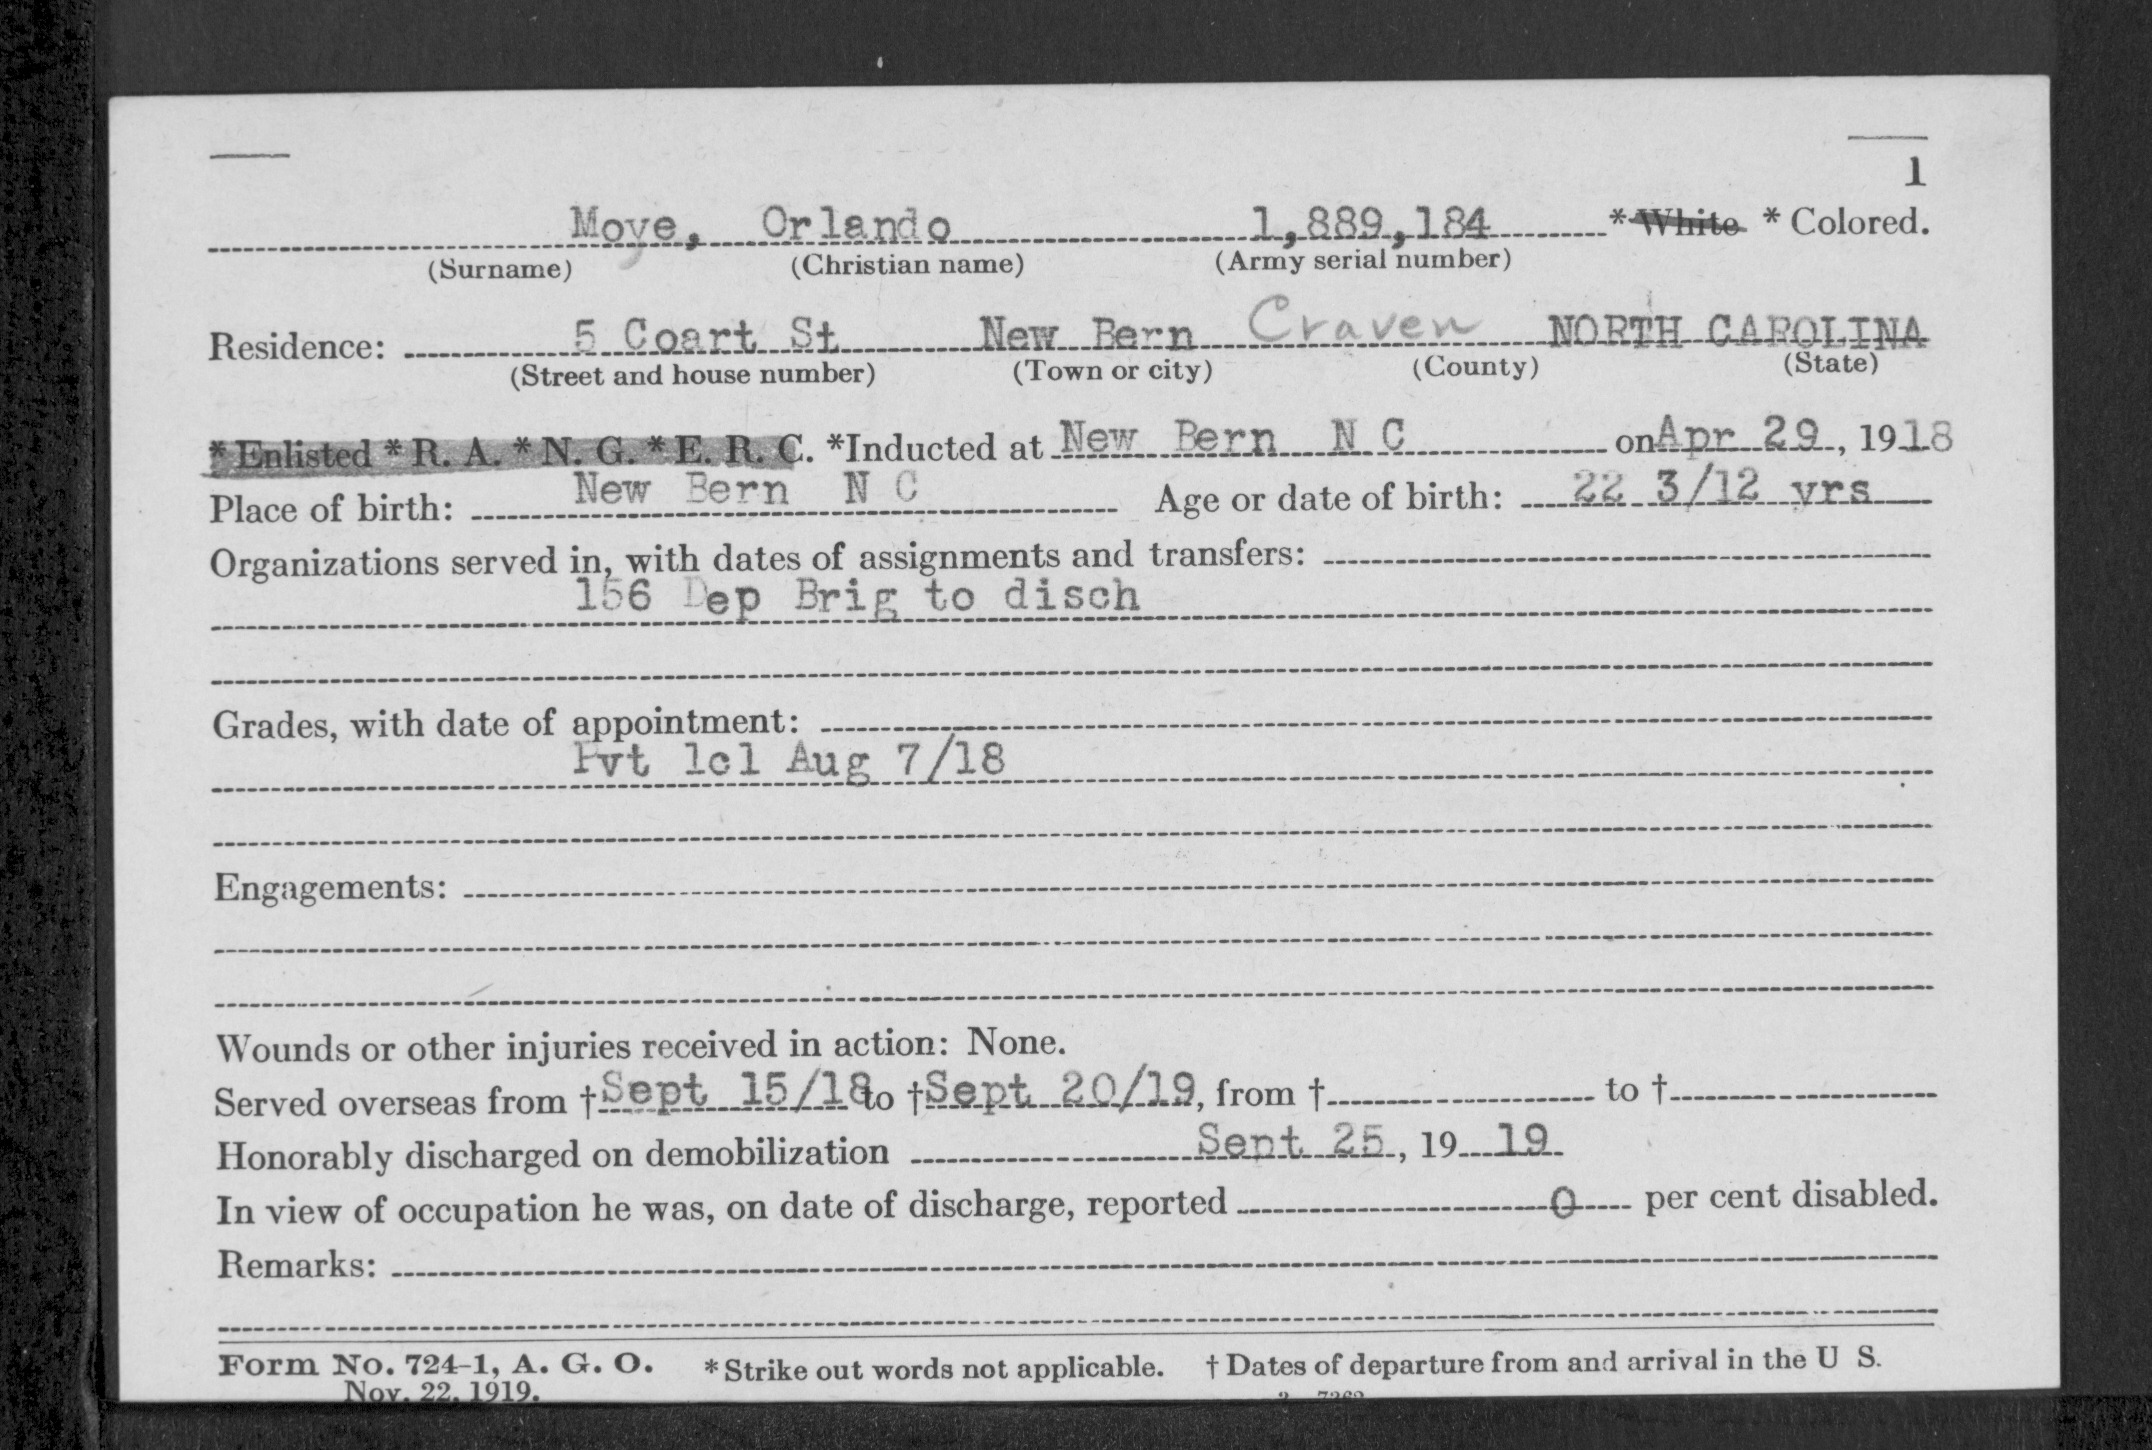 1
Moye, Orlando 1,889,184 * White * Colored.
(Surname) (Christian name) (Army serial number)
Residence: 5 Coart St New Bern Craven NORTH CAROLINA
(Street and house number) (Town or city) (County) (State)
* Enlisted * R. A. * N. G. * E. R. C. *Inducted at New Bern N C on Apr 29, 1918
Place of birth: New Bern N C Age or date of birth: 22 3/12 yrs
Organizations served in, with dates of assignments and transfers:
156 Dep Brig to disch
Grades, with date of appointment:
Pvt 1cl Aug 7/18
Engagements:
Wounds or other injuries received in action: None.
Served overseas from † Sept 15/18 to † Sept 20/19, from † to †
Honorably discharged on demobilization Sept 25, 19 19
In view of occupation he was, on date of discharge, reported 0 per cent disabled.
Remarks:
Form No. 724-1, A. G. O. * Strike out words not applicable. † Dates of departure from and arrival in the U S.
Nov. 22, 1919.